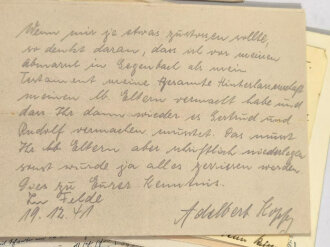 Wenn mir ja etwas zustossen sollte,
so denkt daran, dass ich vor meinem
Abmarsch in Gegenbach als mein
Testament meine gesamte Hinterlassenschaft
meinen lb. Eltern vermacht habe und
dass Ihr dann wieder es Gertrud und
Rudolf vermachen müsstet. Das müsst
Ihr lb Eltern aber schriftlich niederlegen
sonst würde ja alles zerrissen werden
Dies zu Eurer Kenntnis.
Im Felde
19.12.41
Adelbert Kopp